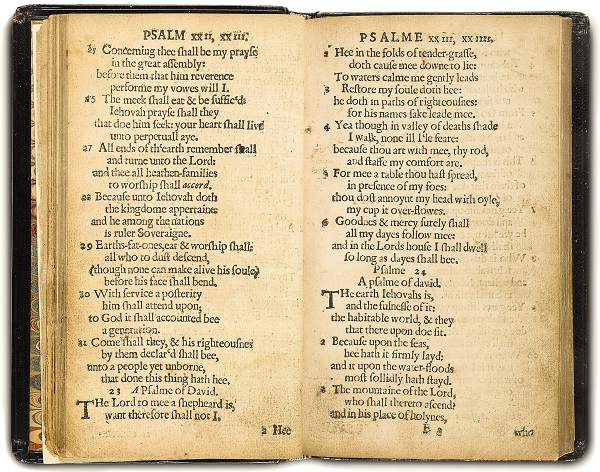 PSALM XXII, XXIII.
25 Concerning thee shall be my prayse
in the great assembly:
before them that him reverence
performe my vowes will I.
25 The meek shall eat & be suffic'd
Iehovah prayse shall they
that doe him seek: your heart shall live
unto perpetuall aye.
27 All ends of th'earth remember shall
and turne unto the Lord:
and thee all heathen-families
to worship shall accord.
28 Because unto Iehovah doth
the kingdome appertaine:
and he among the nations
is ruler Soveraigne.
29 Earths-fat-ones, eat & worship shall:
all who to dust descend,
(though none can make alive his soule)
before his face shall bend.
30 With service a posterity
him shall attend upon,
to God it shall accounted bee
a generation.
31 Come shall they, & his righteousnes
by them declar'd shall bee,
unto a people yet unborne,
that done this thing hath hee.
23 A Psalme of David.
THe Lord to mee a shepheard is,
want therefore shall not I.
2 Hee
PSALME XXIII, XXIIII.
2 Hee in the folds of tender-grasse,
doth cause mee downe to lie:
To waters calme me gently leads
3 Restore my soule doth hee:
he doth in paths of righteousnes:
for his names sake leade mee.
4 Yea though in valley of deaths shade
I walk, none ill I'le feare:
because thou art with mee, thy rod,
and staffe my comfort are.
5 For mee a table thou hast spread,
in presence of my foes:
thou dost annoynt my head with oyle,
my cup it over-flowes.
6 Goodnes & mercy surely shall
all my dayes follow mee:
and in the Lords house I shall dwell
so long as dayes shall bee.
Psalme 24
A psalme of david.
THe earth Iehovahs is,
and the fulnesse of it:
the habitable world, & they
that there upon doe sit.
2 Because upon the seas,
hee hath it firmly layd:
and it upon the water-floods
most sollidly hath stayd.
3 The mountaine of the Lord,
who shall thereto ascend?
and in his place of holynes,
E 3
who